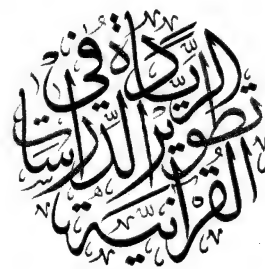 الرِّيَادَةُ فِي
تَطْوِيْرِ الدِّرَاسَاتِ
القُرْآنِيَّةِ